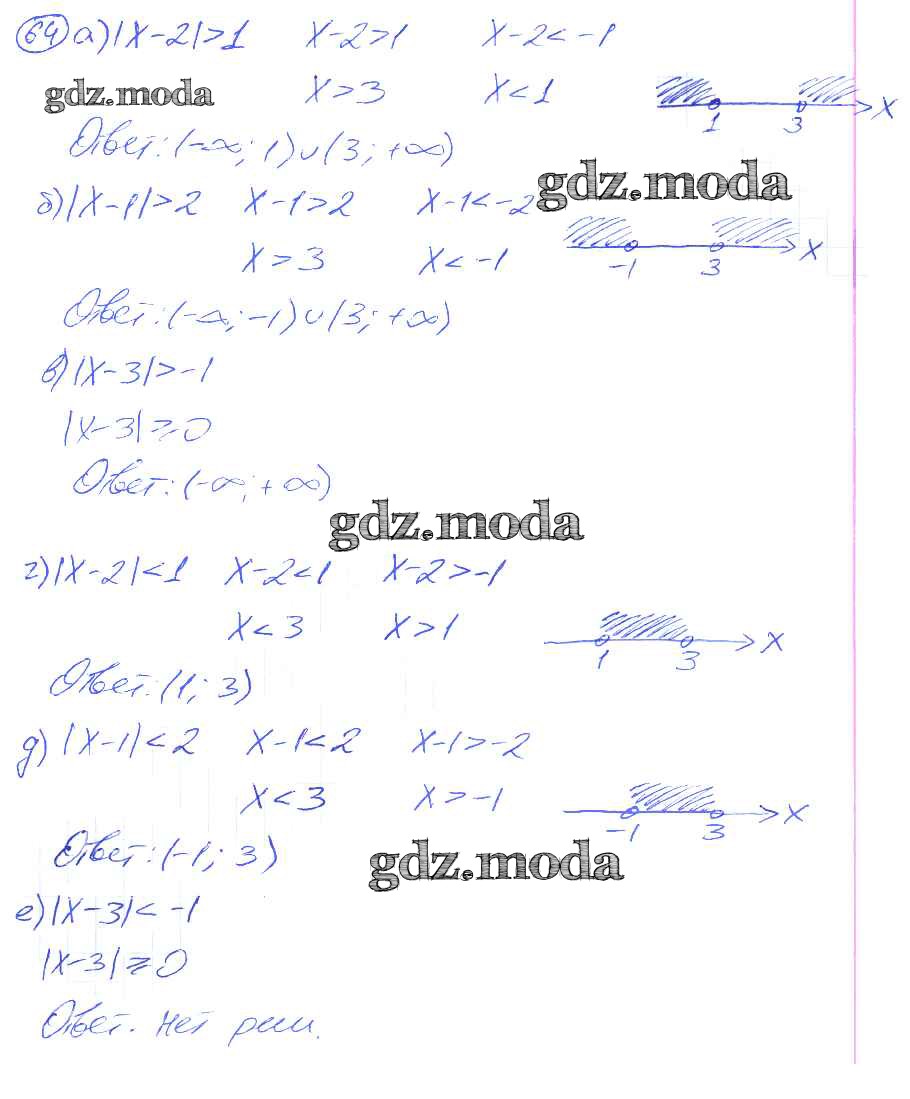 64 а) |x-2|>1 x-2>1 x-2<-1
gdz.moda x>3 x<1
1 3 x
Ответ: (-∞; 1)∪(3; +∞)
gdz.moda
б) |x-1|>2 x-1>2 x-1<-2
x>3 x<-1
-1 3 x
Ответ: (-∞; -1)∪(3; +∞)
в) |x-3|>-1
|x-3|⩾0
Ответ: (-∞; +∞)
gdz.moda
г) |x-2|<1 x-2<1 x-2>-1
x<3 x>1
1 3 x
Ответ: (1; 3)
д) |x-1|<2 x-1<2 x-1>-2
x<3 x>-1
-1 3 x
Ответ: (-1; 3)
gdz.moda
е) |x-3|<-1
|x-3|⩾0
Ответ. нет реш.